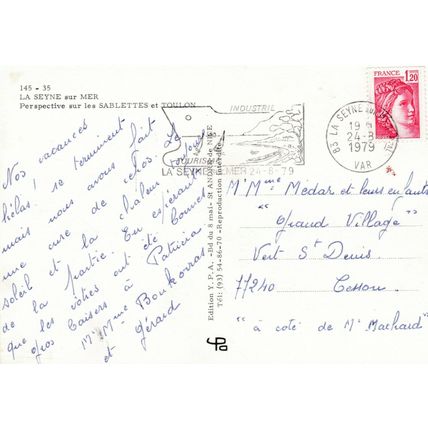 145 - 35
LA SEYNE sur MER
Perspective sur les SABLETTES et TOULON
Nos vacances
hélas ! se terminent
mais nous avons fait
une cure de repos. Le
soleil et la chaleur
de la partie. En espérant
que les votres ont été bonnes
gros baisers à Patricia
Mr Mme Boukorras
et Gérard
Edition Y. P. A. - Bd du 8 mai - St ANDRÉ de NICE
Tél: (93) 54-86-70 - Reproduction interdite
INDUSTRIE
TOURISME
LA SEYNE S/MER 24-8-79
83 LA SEYNE SUR MER
19 H
24-8
1979
VAR
FRANCE
1,20
Mr Mme Medar et leurs enfants
"Grand Village"
Vert St Denis.
77240 Cesson.
"à coté de Mr Machard"